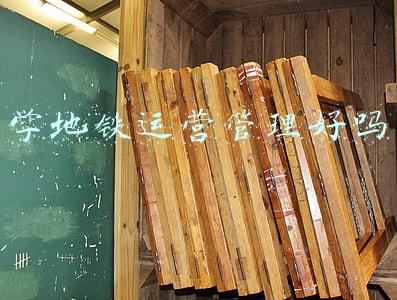 学地铁运营管理好吗